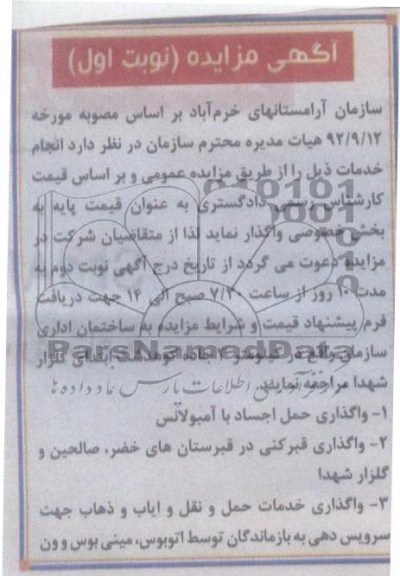 آگهی مزایده (نوبت اول)
سازمان آرامستانهای خرم‌آباد بر اساس مصوبه مورخه
۹۲/۹/۱۲ هیات مدیره محترم سازمان در نظر دارد انجام
خدمات ذیل را از طریق مزایده عمومی و بر اساس قیمت
کارشناس رسمی دادگستری به عنوان قیمت پایه به
بخش خصوصی واگذار نماید لذا از متقاضیان شرکت در
مزایده دعوت می گردد از تاریخ درج آگهی نوبت دوم به
مدت ۱۰ روز از ساعت ۷/۳۰ صبح الی ۱۴ جهت دریافت
فرم پیشنهاد قیمت و شرایط مزایده به ساختمان اداری
سازمان واقع در کیلومتر ۷ جاده کوهدشت گلزار
شهدا مراجعه نمایند.
۱- واگذاری حمل اجساد با آمبولانس
۲- واگذاری قبرکنی در قبرستان های خضر، صالحین و
گلزار شهدا
۳- واگذاری خدمات حمل و نقل و ایاب و ذهاب جهت
سرویس دهی به بازماندگان توسط اتوبوس، مینی بوس و ون
ParsNamadData